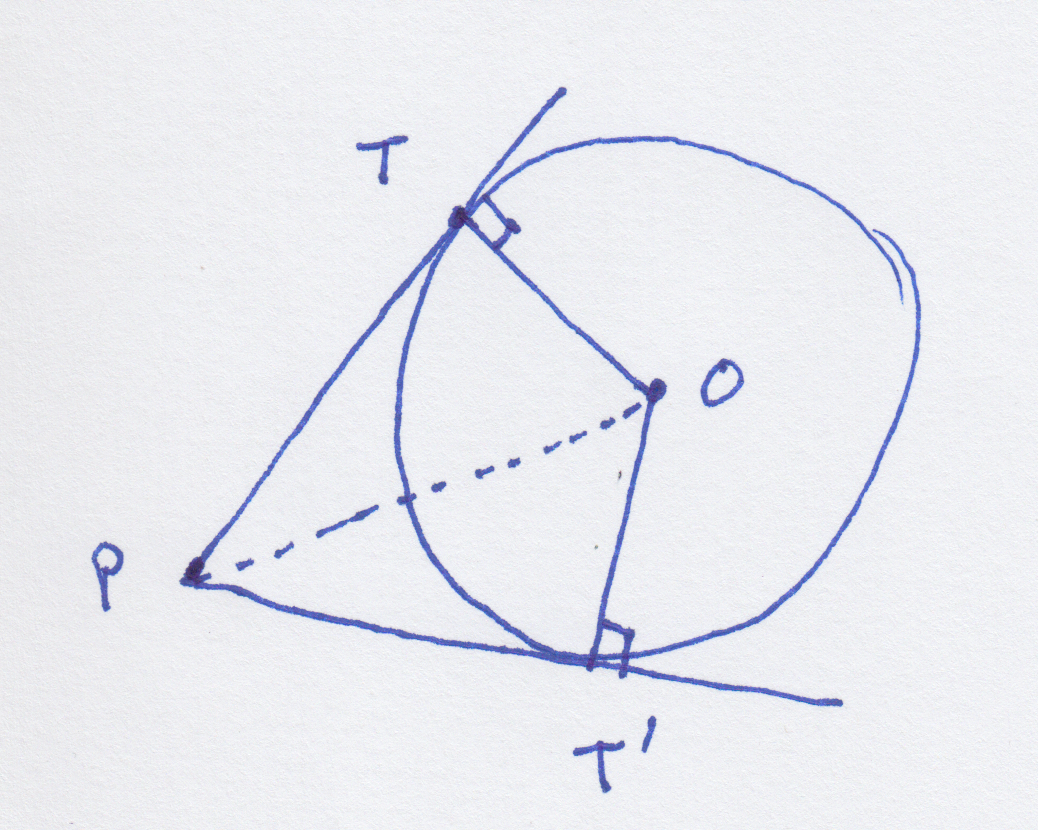 T
O
P
T'